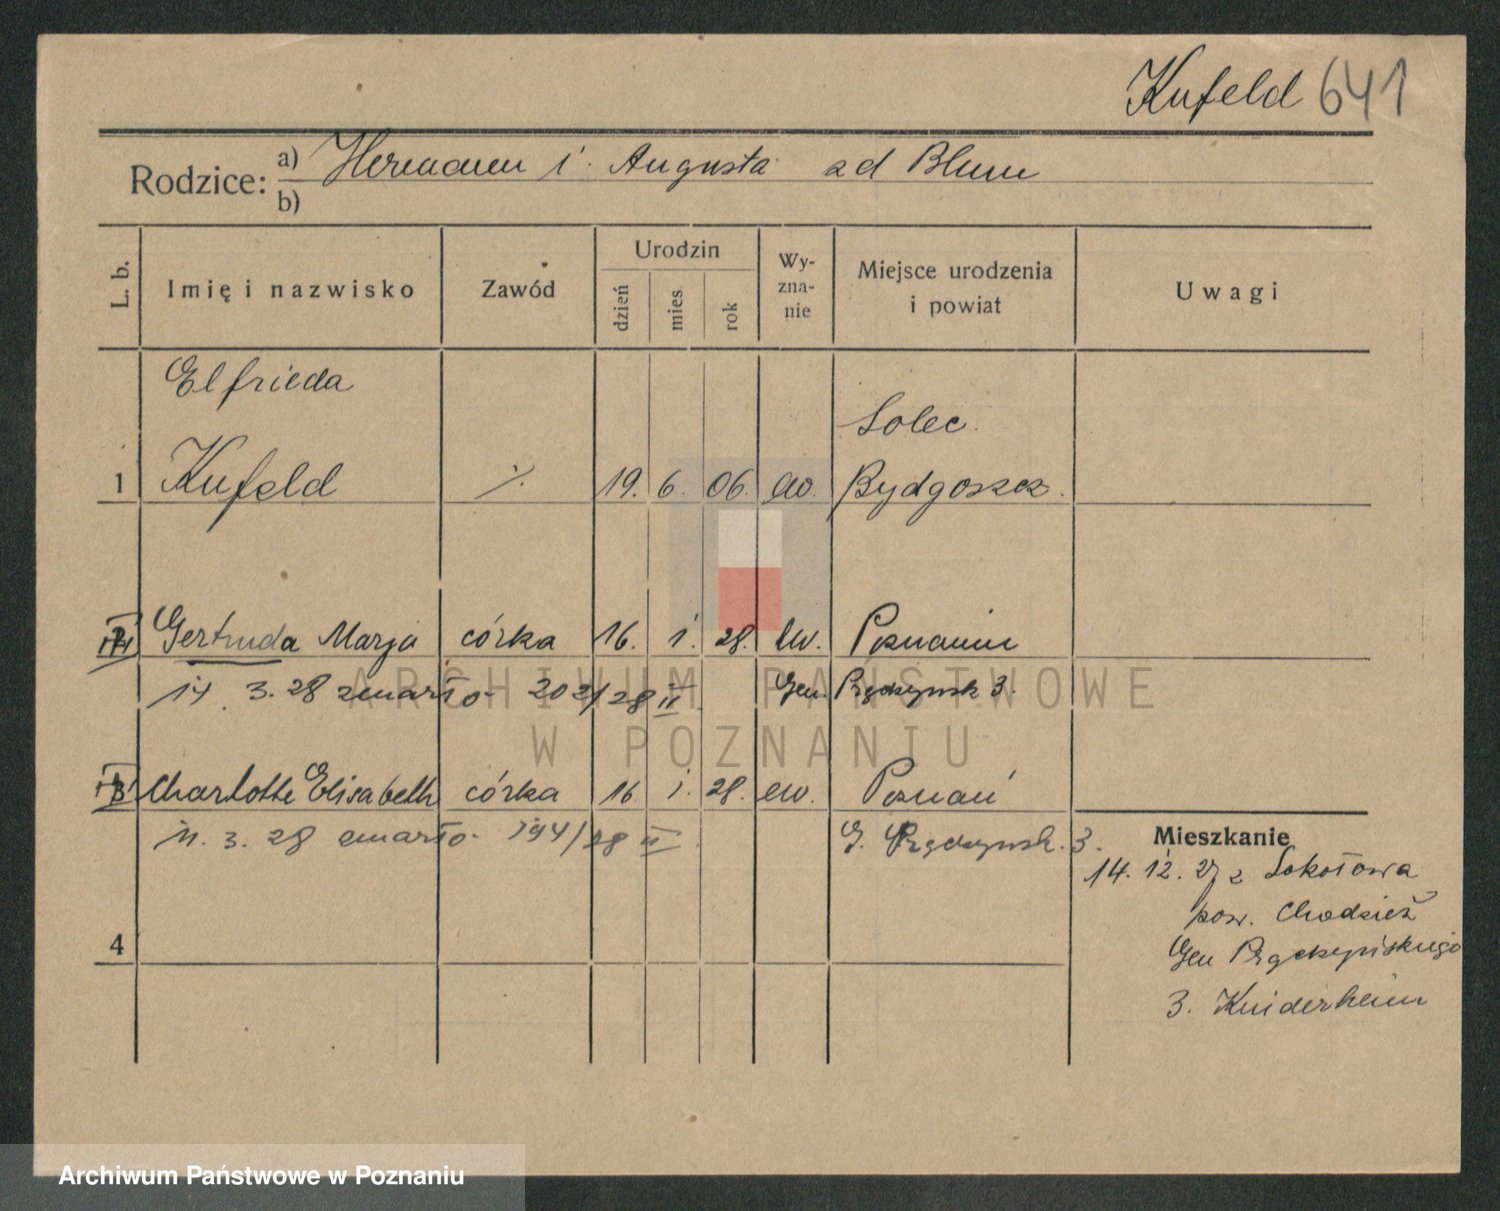 Kufeld 641
Rodzice: a) Hermann i Augusta zd Blum
b)
L. b. Imię i nazwisko Zawód Urodzin dzień mies rok Wyzna-nie Miejsce urodzenia i powiat Uwagi
Elfrieda
Solec.
1 Kufeld ./. 19. 6. 06. ew. Bydgoszcz.
Gertruda Marja córka 16. i. 28. ew. Poznaniu
14 3. 28 zmarło 202/28 II Gen. Prądzyńsk 3.
Charlotte Elisabeth córka 16 i. 28. ew. Poznań
11. 3. 28 zmarło 194/28 II G. Prądzyńsk. 3.
Mieszkanie
14. 12. 27 z Sokołowa
pow. Chodzież
4
Gen Prądzyńskiego
3. Kinderheim
ARCHIWUM PAŃSTWOWE
W POZNANIU
Archiwum Państwowe w Poznaniu